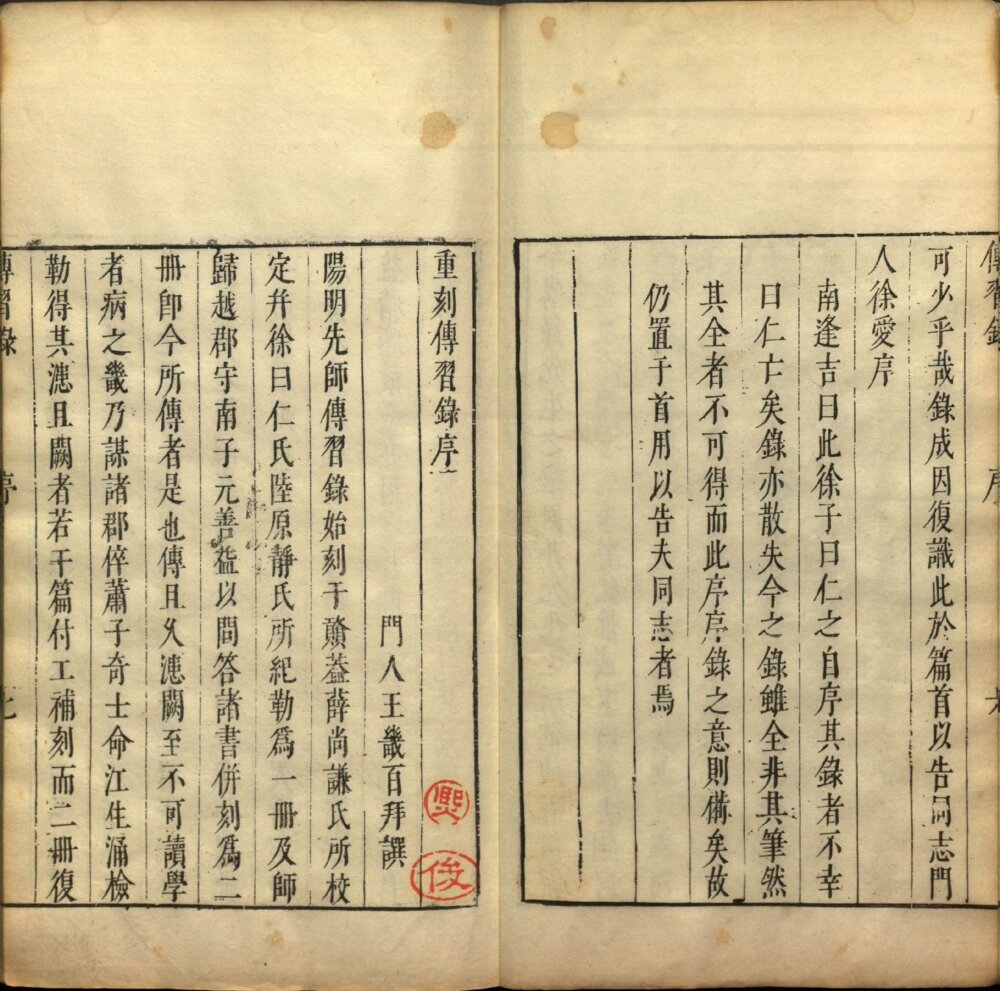 傳習錄 序
可少乎哉錄成因復識此於篇首以告同志門
人徐愛序
南逢吉曰此徐子曰仁之自序其錄者不幸
曰仁亡矣錄亦散失今之錄雖全非其筆然
其全者不可得而此序序錄之意則備矣故
仍置于首用以告夫同志者焉
重刻傳習錄序
門人王畿百拜譔
陽明先師傳習錄始刻于贛葢薛尚謙氏所校
定幷徐曰仁氏陸原靜氏所紀勒爲一冊及師
歸越郡守南子元善益以問答諸書併刻爲二
冊卽今所傳者是也傳且久漶闕至不可讀學
者病之畿乃謀諸郡倅蕭子奇士命江生涌檢
勒得其漶且闕者若干篇付工補刻而二冊復
傳習錄 序 七
俊